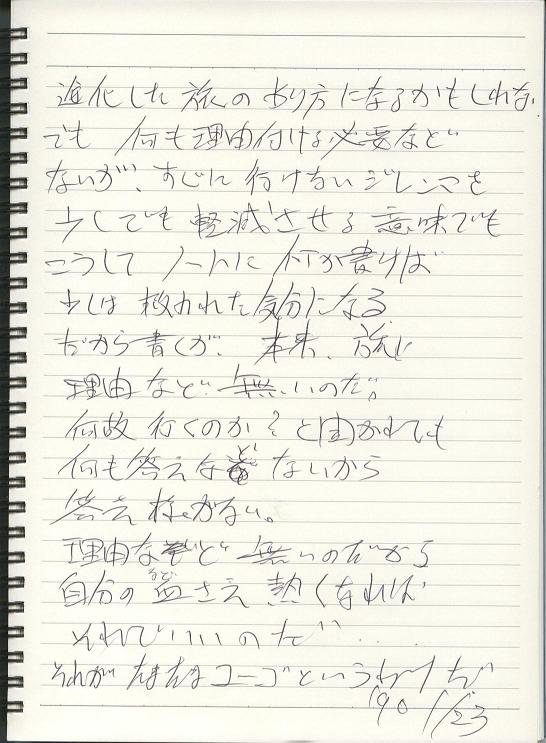 進化した旅のあり方になるかもしれない
でも 何も理由付ける必要など
ないが、すぐに行けないジレンマを
少しでも軽減させる意味でも
こうして ノートに何か書けば
少しは救われた気分になる
だから書くが、本来、旅に
理由など無いのだ。
何故行くのか?と聞かれても
何も答えなど ないから
答え様がない。
理由など無いのだから
自分の血さえ熱くなれば
それでいいのだ‥
それがたまたまユーゴというわけだ
'90 1/23